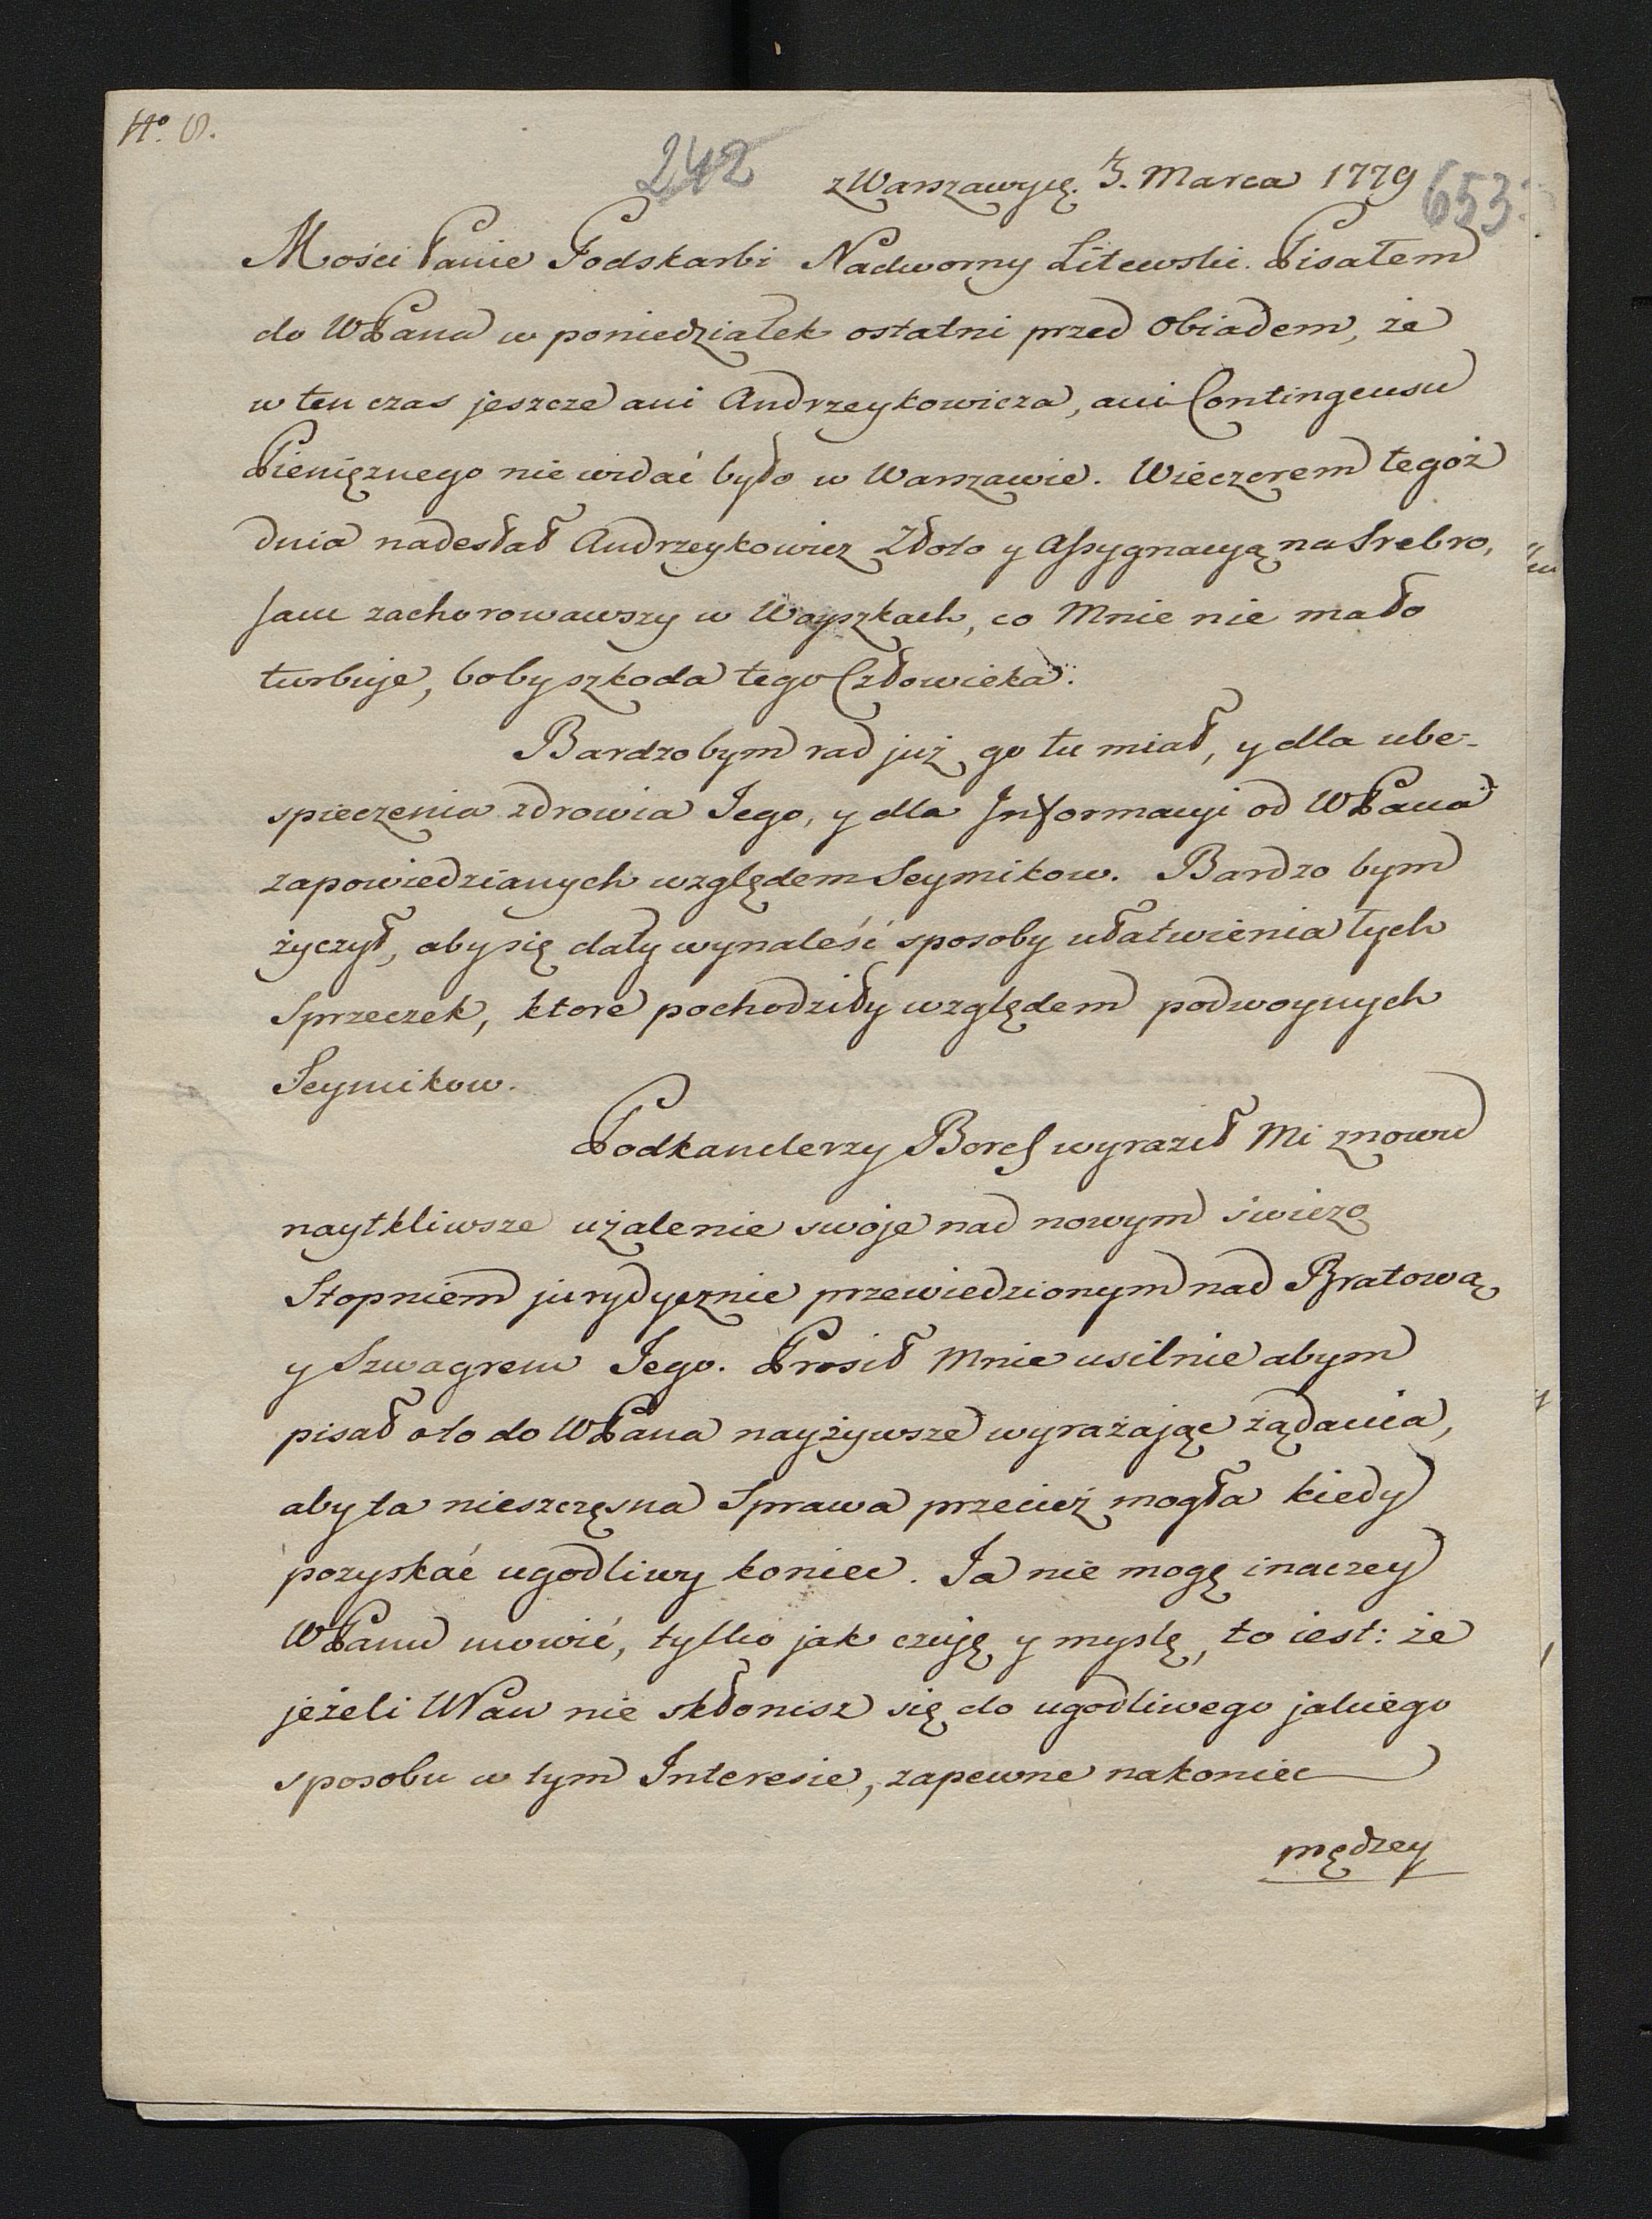 N° 8.
242
z Warszawy śrę. 3. Marca 1779
653
Mości Panie Podskarbi Nadworny Litewski. Pisałem
do WPana w poniedziałek ostatni przed Obiadem, że
w ten czas jeszcze ani Andrzeykowicza, ani Contingensu
Pieniężnego nie widać było w Warszawie. Wieczorem tegoż
dnia nadesłał Andrzeykowicz Złoto y Assygnacyą na Srebro,
sam zachorowawszy w Woyszkach, co Mnie nie mało
turbuje, boby szkoda tego Człowieka.
Bardzobym rad już go tu miał, y dla ube-
spieczenia zdrowia Jego, y dla Informacyi od WPana
zapowiedzianych względem Seymikow. Bardzo bym
życzył, aby się dały wynaleść sposoby ułatwienia tych
Sprzeczek, ktore pochodziły względem podwoynych
Seymikow.
Podkanclerzy Borch wyraził Mi znowu
naytkliwsze użalenie swoje nad nowym świeżo
Stopniem jurydycznie przewiedzionym nad Bratową
y Szwagrem Jego. Prosił Mnie usilnie abym
pisał oto do WPana nayżywsze wyrażając żądania,
aby ta nieszczęsna Sprawa przecież mogła kiedy
pozyskać ugodliwy koniec. Ja nie mogę inaczey
WPanu mowić, tylko jak czuję y myślę, to iest: że
jeżeli WPan nie skłonisz się do ugodliwego jakiego
sposobu w tym Interesie, zapewne nakoniec
prędzey